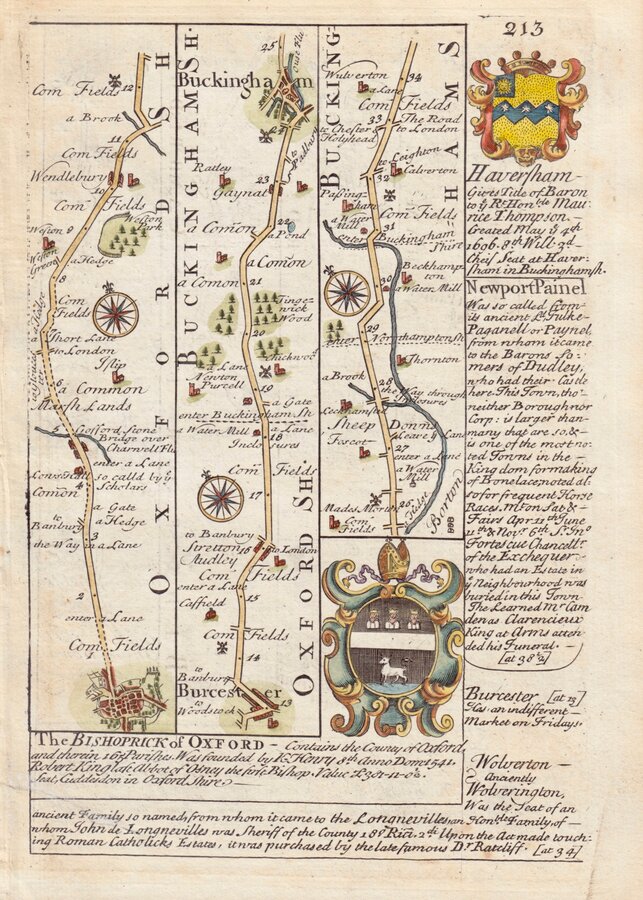 213
Com Fields
12
a Brook
11
Com Fields
Wendlebury
10
Com Fields
Weston
Park
Weston 9
Weston
Green
a Hedge
8
Com
Fields
a Hedge
Short Lane
to London
Islip
6
a Common
Marsh Lands
5
Gosford Stone
Bridge over
Charwell Flu
enter a Lane
4
Cons Hall
so calld by ye
Scholars
Comon
a Gate
a Hedge
to
Banbury
3
the Way in a Lane
2
enter a Lane
Com Fields
OXFORD SH
25
Ouse Flu
Buckingham
24
to Padbury
Ratley
Gaynal
23
22
a Comon
a Pond
a Comon
21
a Comon
20
Tinge-
wick
Wood
Chickwod
a Lane
Newton
Purcell
19
a Gate
enter Buckingham Sh
a Water Mill
a Lane
18
Inclosures
Com Fields
17
to Banbury
Stretton
Studley
16
to London
Com Fields
enter a Lane
15
Caffield
Com Fields
14
to
Banbury
Burcester
13
to
Woodstock
BUCKINGHAMSH.
OXFORD SH.
34
Wulverton
a Lane
Com Fields
33
The Road
to London
to Chester &
Holyhead
to Leighton
32
Calverton
Passing-
ham
a Water
Mill
Com Fields
31
enter Buckingham
Shire
Beckhamp
ton
a Water Mill
30
29
enter Northamptonsh
Thornton
a Brook
28
Way through
Inclosures
Leckhamsted
Sheep Downs
27
Leave ye Lane
Foxcot
enter a Lane
a Water
Mill
26
Mades Morton
Com
Fields
a Hedge
Borton
BUCKINGHAMS
Haversham-
Gives Title of Baron
to ye Rt. Honble Mau
rice Thompson
Created May ye 4th
1696. 8th Will. 3d.
Cheif Seat at Haver
sham in Buckinghamsh.
Newport Painel
Was so called from
its ancient Ld. Fulke
Paganell or Paynel,
from whom it came
to the Barons So:
mers of Dudley,
who had their Castle
here. This Town, tho'
neither Borough nor
Corp: is larger than
many that are so: &
is one of the most no:
ted Towns in the
Kingdom for making
of Bonelace, noted al
so for frequent Horse
Races. Mt. on Sat. &
Fairs Apr. 11th June
11th & Nov. 6th Sr. Jno.
Fortescue Chancellr.
of the Exchequer
who had an Estate in
ye Neighbourhood was
buried in this Town
The Learned Mr Cam
den as Clarencieux
King at Arms atten
ded his Funeral.
[at 38½]
Burcester [at 13]
Has an indifferent
Market on Fridays.
Wolverton-
Anciently
Wolverington,
Was the Seat of an
The BISHOPRICK of OXFORD - Contains the County of Oxford,
and therein 195 Parishes. Was founded by K. Henry 8th Anno Dom: 1541.
Robert King last Abbot of Osney the first Bishop. Value £381-11-0½.
Seat, Cuddesdon in Oxford Shire
ancient Family so named, from whom it came to the Longnevilles, an Honble Family, of
whom John de Longnevilles was Sheriff of the County 18o Rici. 2d. Upon the Act made touch-
ing Roman Catholicks Estates, it was purchased by the late famous Dr. Ratcliff. [at 34]